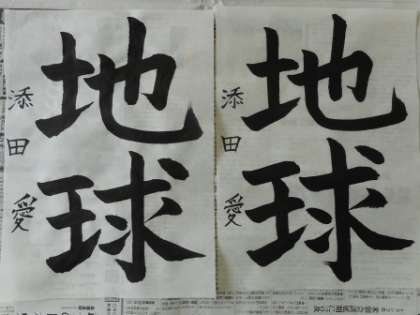 地球
添田愛
地球
添田愛